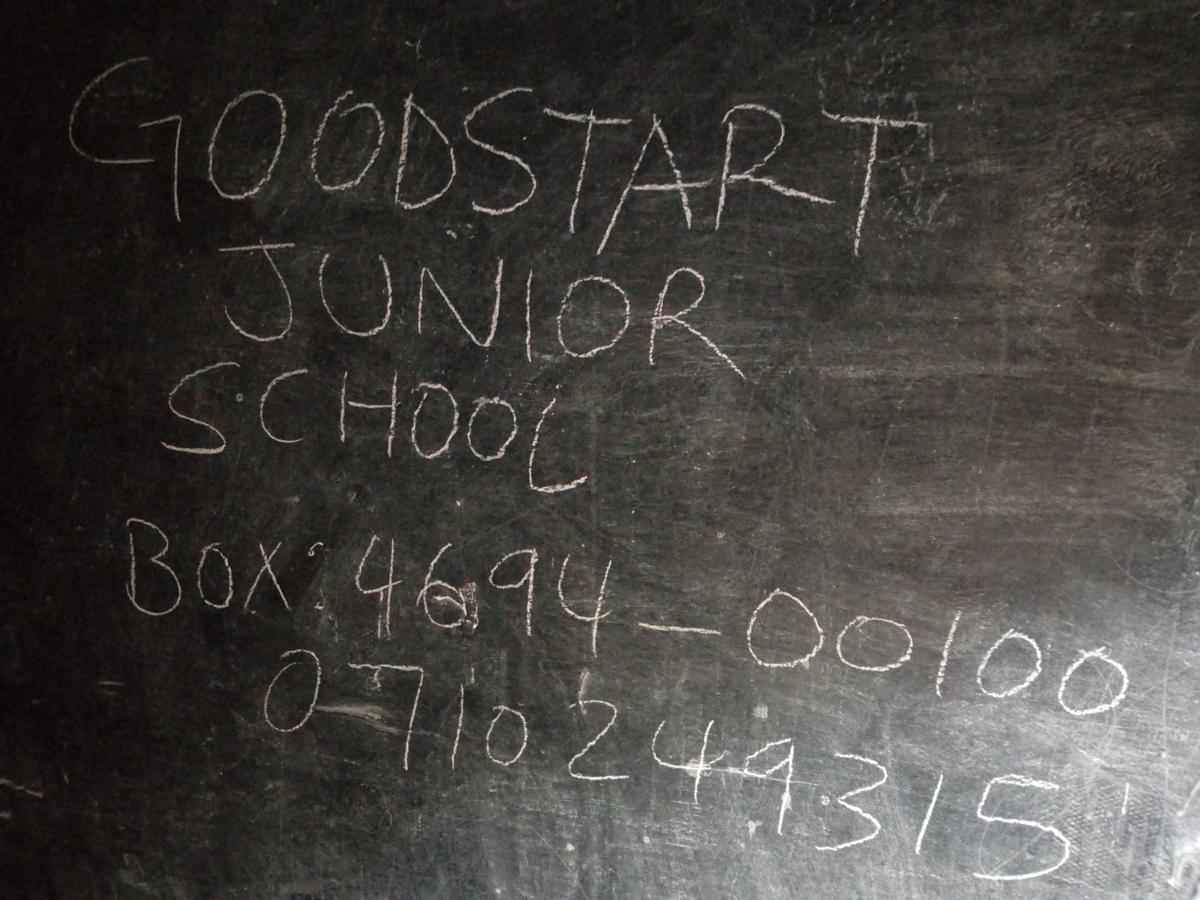 GOODSTART
JUNIOR
SCHOOL
BOX: 4694 - 00100
0710249315